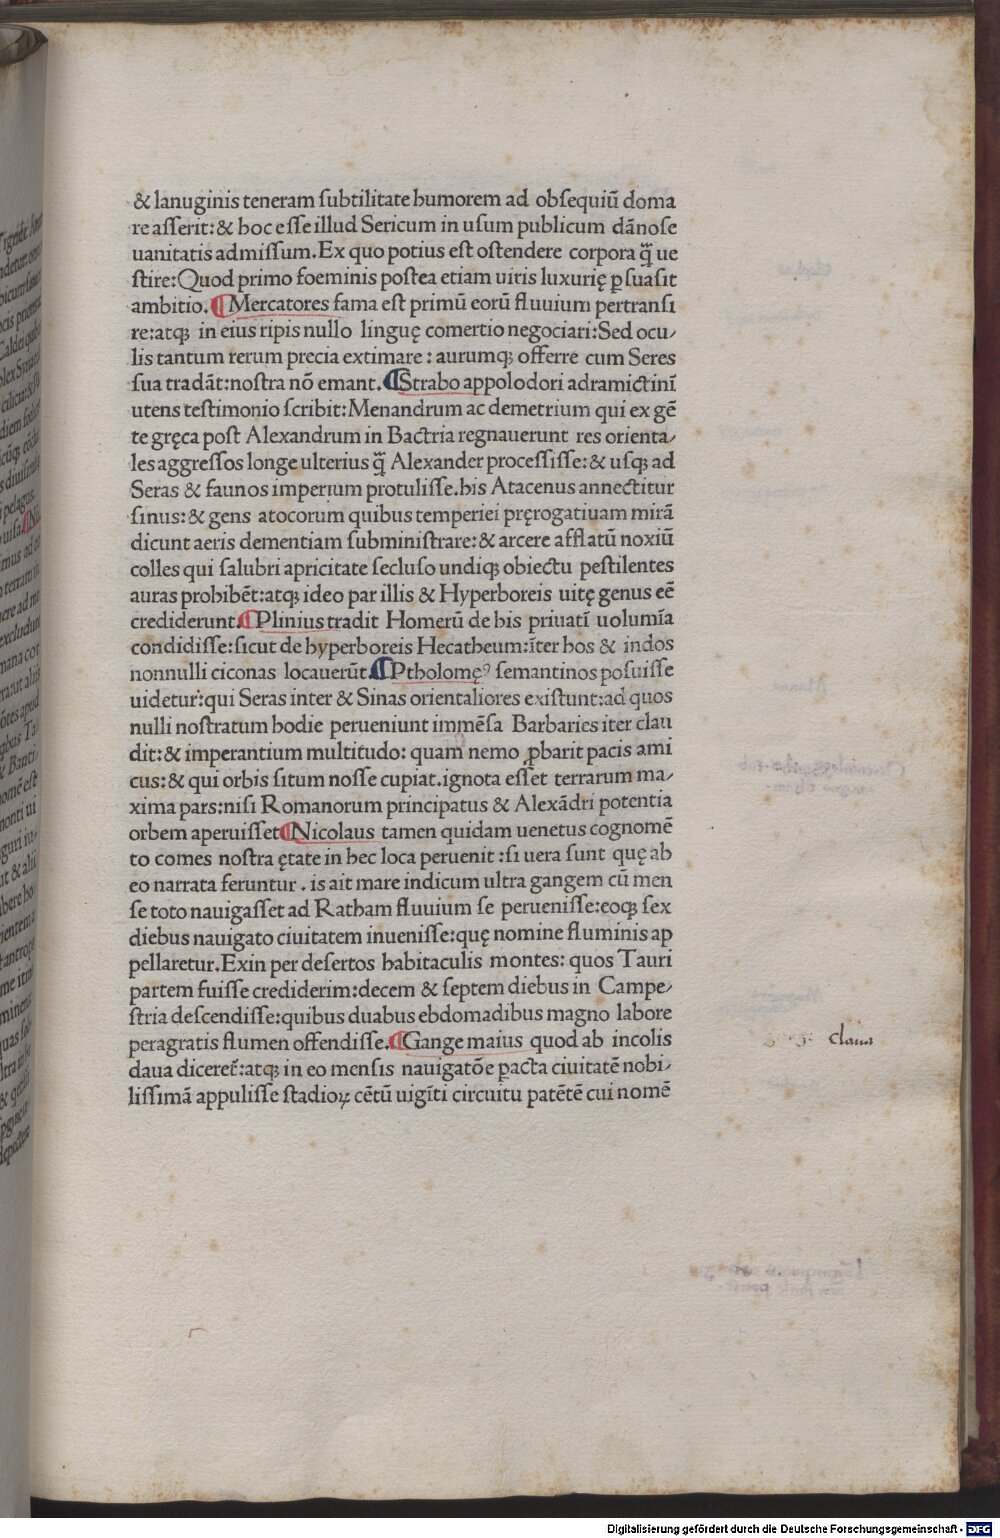 & lanuginis teneram subtilitate humorem ad obsequiū doma
re asserit: & hoc esse illud Sericum in usum publicum dānose
uanitatis admissum. Ex quo potius est ostendere corpora q̄ ue
stire: Quod primo foeminis postea etiam uiris luxurię ꝑsuasit
ambitio. ¶ Mercatores fama est primū eorū fluuium pertransi
re: atqꝫ in eius ripis nullo linguę comertio negociari: Sed ocu⸗
lis tantum rerum precia extimare: aurumqꝫ offerre cum Seres
sua tradāt: nostra nō emant. ¶ Strabo appolodori adramictinī
utens testimonio scribit: Menandrum ac demetrium qui ex gē
te gręca post Alexandrum in Bactria regnauerunt res orienta⸗
les aggressos longe ulterius q̄ Alexander processisse: & usqꝫ ad
Seras & faunos imperium protulisse. his Atacenus annectitur
sinus: & gens atocorum quibus temperiei pręrogatiuam mirā
dicunt aeris dementiam subministrare: & arcere afflatū noxiū
colles qui salubri apricitate secluso undiqꝫ obiectu pestilentes
auras probibēt: atqꝫ ideo par illis & Hyperboreis uitę genus eē
crediderunt. ¶ Plinius tradit Homerū de his priuatī uolumīa
condidisse: sicut de hyperboreis Hecatheum: īter hos & indos
nonnulli ciconas locauerūt. ¶ Ptholomęꝰ semantinos posuisse
uidetur: qui Seras inter & Sinas orientaliores existunt: ad quos
nulli nostratum hodie perueniunt immēsa Barbaries iter clau
dit: & imperantium multitudo: quam nemo ꝓbarit pacis ami
cus: & qui orbis situm nosse cupiat. ignota esset terrarum ma⸗
xima pars: nisi Romanorum principatus & Alexādri potentia
orbem aperuisset ¶ Nicolaus tamen quidam uenetus cognomē
to comes nostra ętate in hec loca peruenit: si uera sunt quę ab
eo narrata feruntur. is ait mare indicum ultra gangem cū men
se toto nauigasset ad Ratham fluuium se peruenisse: eoqꝫ sex
diebus nauigato ciuitatem inuenisse: quę nomine fluminis ap
pellaretur. Exin per desertos habitaculis montes: quos Tauri
partem fuisse crediderim: decem & septem diebus in Campe⸗
stria descendisse: quibus duabus ebdomadibus magno labore
peragratis flumen offendisse. ¶ Gange maius quod ab incolis
daua diceret̄: atqꝫ in eo mensis nauigatōe ꝑacta ciuitatē nobi⸗
lissimā appulisse stadioꝝ cētū uigīti circuitu patētē cui nomē
Digitalisierung gefördert durch die Deutsche Forschungsgemeinschaft - DFG